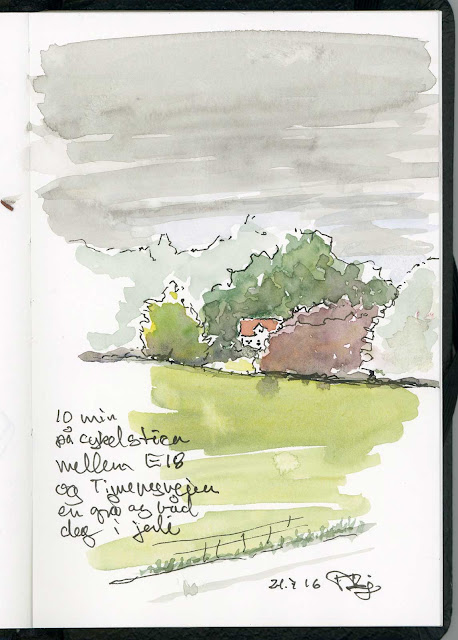 10 min
på cykelstien
mellem E18
og
en grå og våd
dag i juli
21.7 16